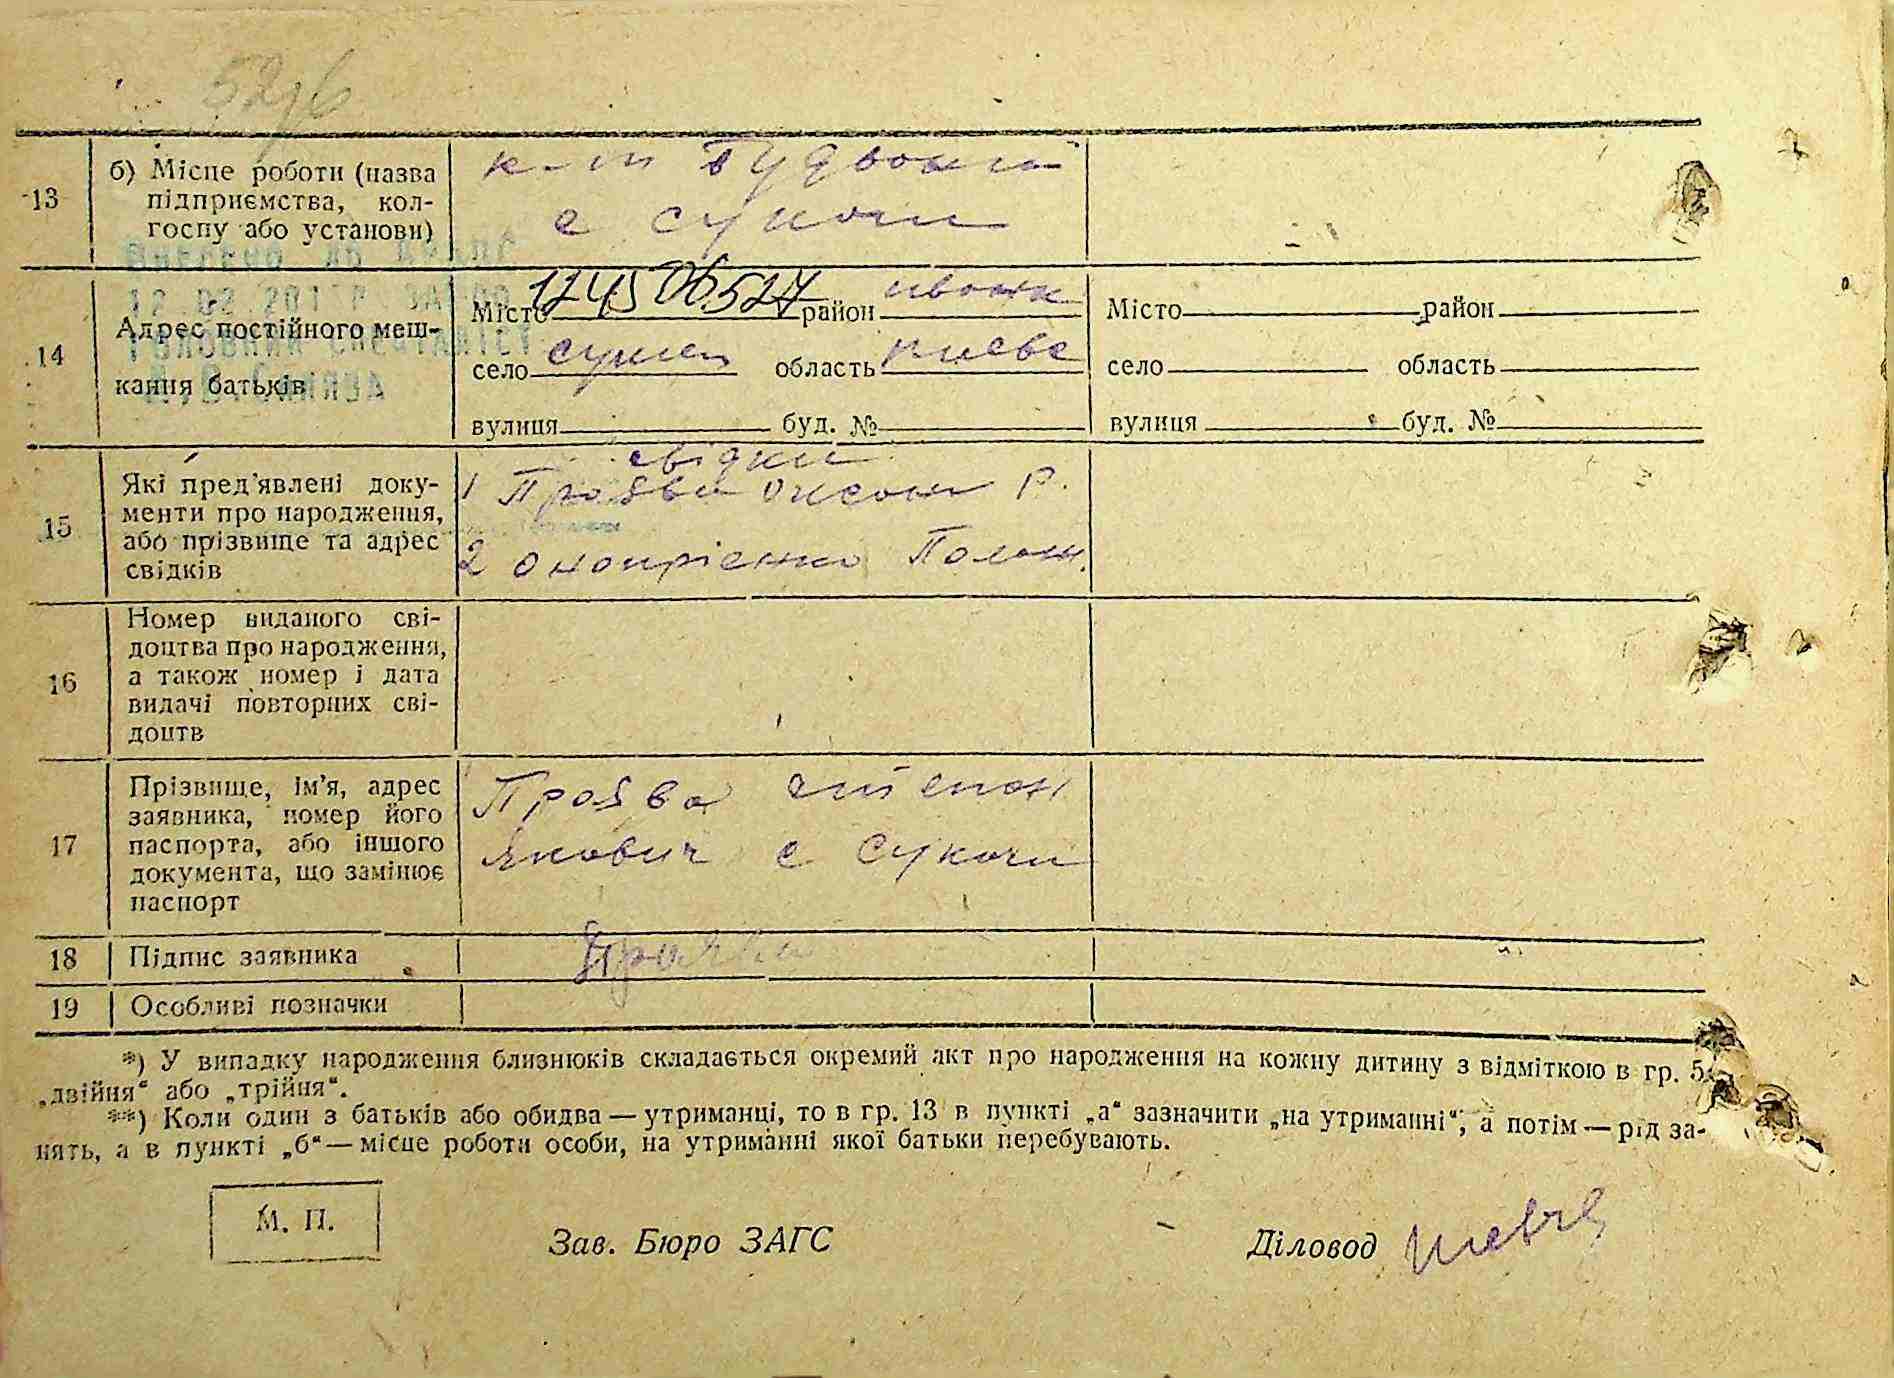 52
13
б) Місце роботи (назва
підприємства, кол-
госпу або установи)
к-т
с сукачи
14
Адрес постійного меш-
кання батьків
Місто 12450б527 район іванк
село область києвс
вулиця буд. №
Місто район
село область
вулиця буд. №
15
Які пред'явлені доку-
менти про народження,
або прізвище та адрес
свідків
свідки
1 Проява Оксана Р.
2 Онопрієнко Палаж.
16
Номер виданого сві-
доцтва про народження,
а також номер і дата
видачі повторних сві-
доцтв
17
Прізвище, ім'я, адрес
заявника, номер його
паспорта, або іншого
документа, що замінює
паспорт
Проява степан
Якович с Сукачи
18 Підпис заявника
Проява
19 Особливі позначки
*) У випадку народження близнюків складається окремий акт про народження на кожну дитину з відміткою в гр. 5
„двійня“ або „трійня“.
**) Коли один з батьків або обидва — утриманці, то в гр. 13 в пункті „а“ зазначити „на утриманні“, а потім — рід за-
нять, а в пункті „б“ — місце роботи особи, на утриманні якої батьки перебувають.
М. П.
Зав. Бюро ЗАГС
Діловод